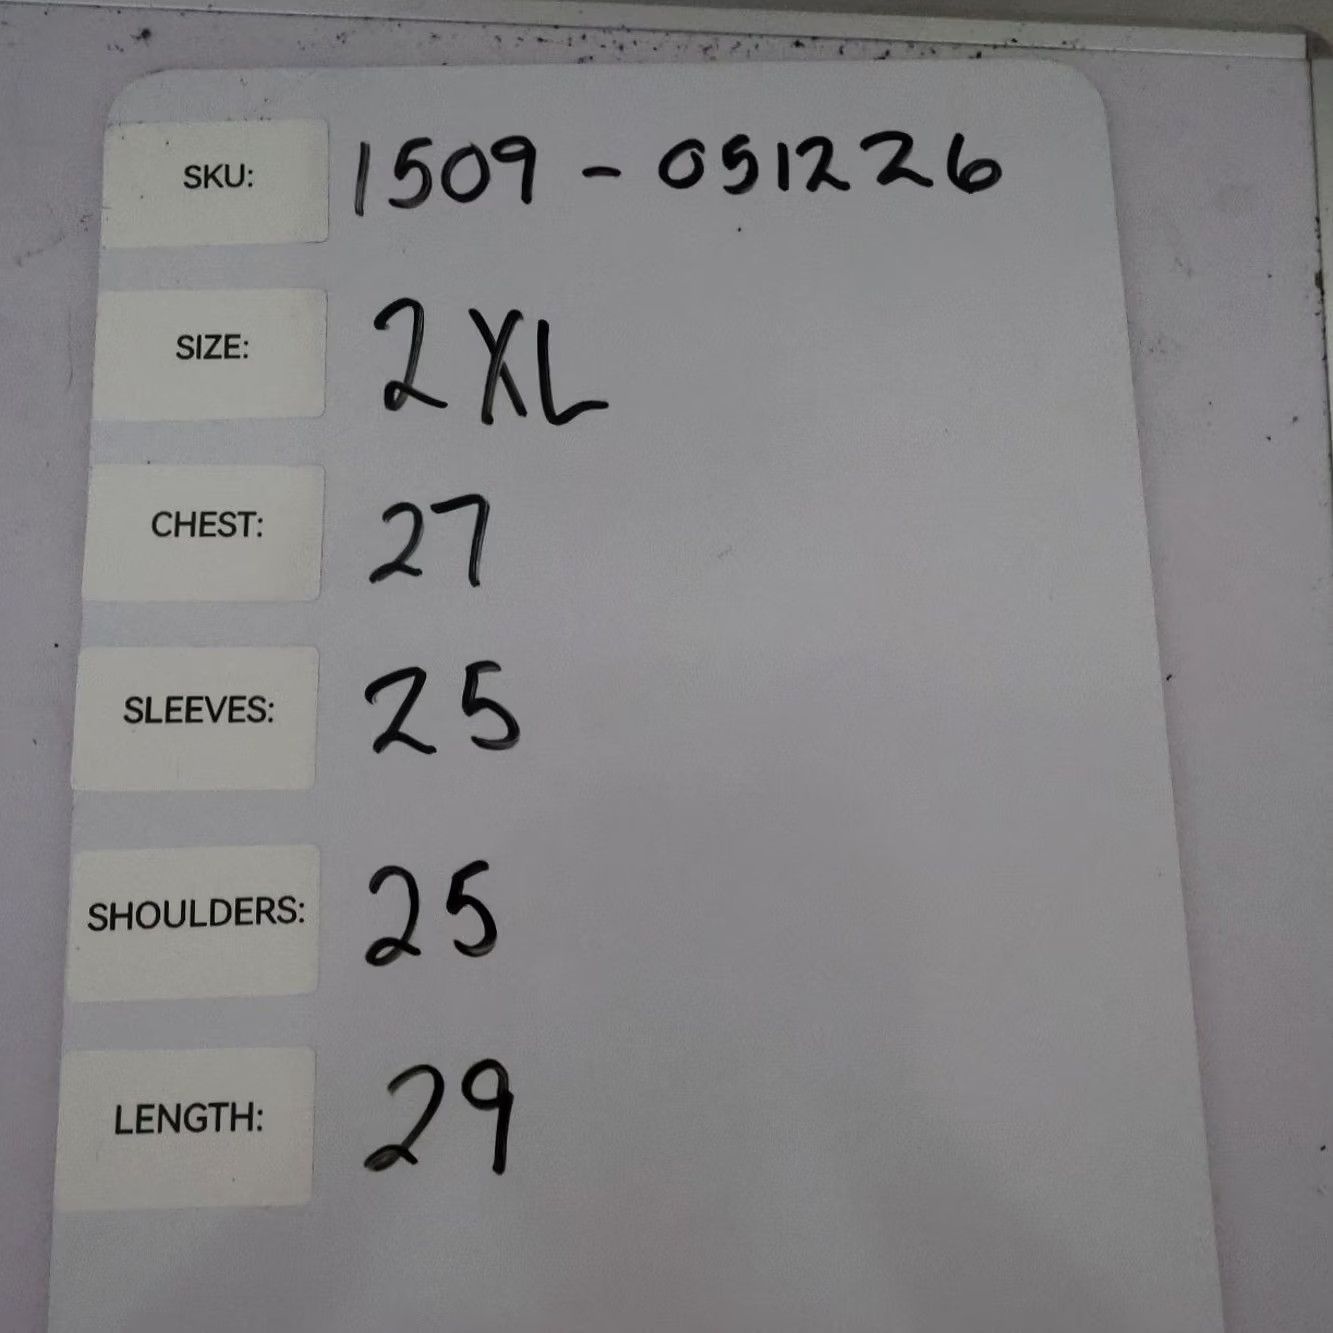 SKU: 1509 - 051226
SIZE: 2XL
CHEST: 27
SLEEVES: 25
SHOULDERS: 25
LENGTH: 29